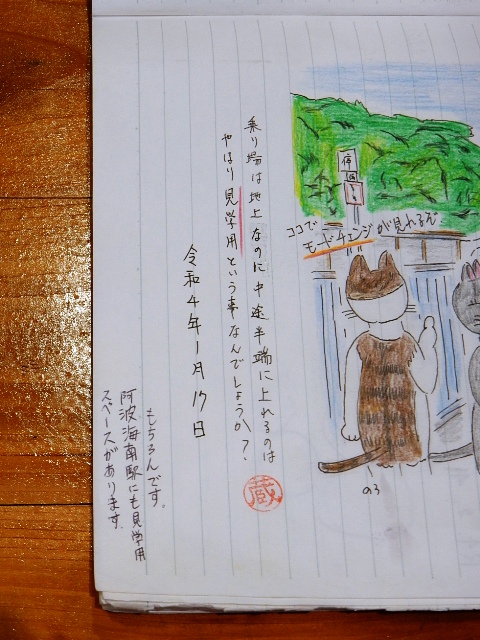 ココで
モードチェンジが見れるぞ
乗り場は地上なのに中途半端に上れるのは
やはり見学用という事なんでしょうか?
令和4年1月17日
蔵
もちろんです。
阿波海南駅にも見学用
スペースがあります。